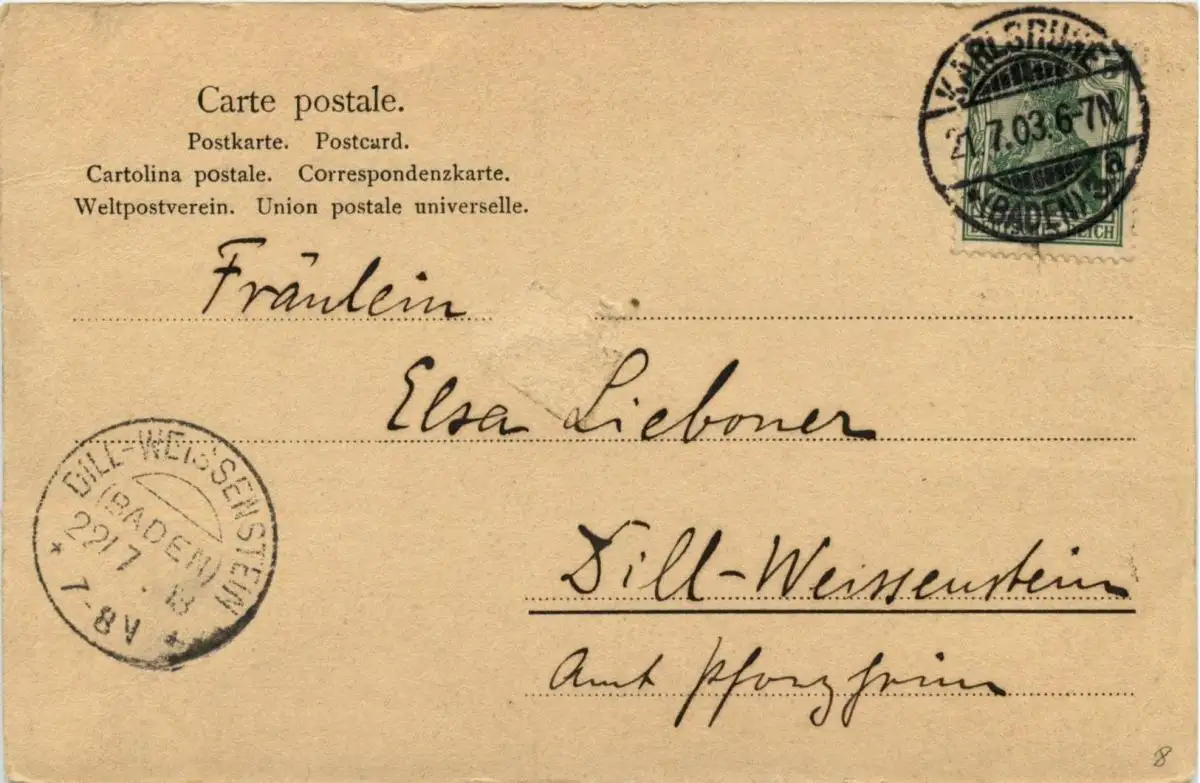 Carte postale.
Postkarte. Postcard.
Cartolina postale. Correspondenzkarte.
Weltpostverein. Union postale universelle.
KARLSRUHE
21.7.03.6-7N
*(BADEN)3a
DEUTSCHES REICH
Fräulein
Elsa Lieboner
DILL-WEISSENSTEIN
(BADEN)
22/7
7-8V
Dill-Weissenstein
Amt Pforzheim
8